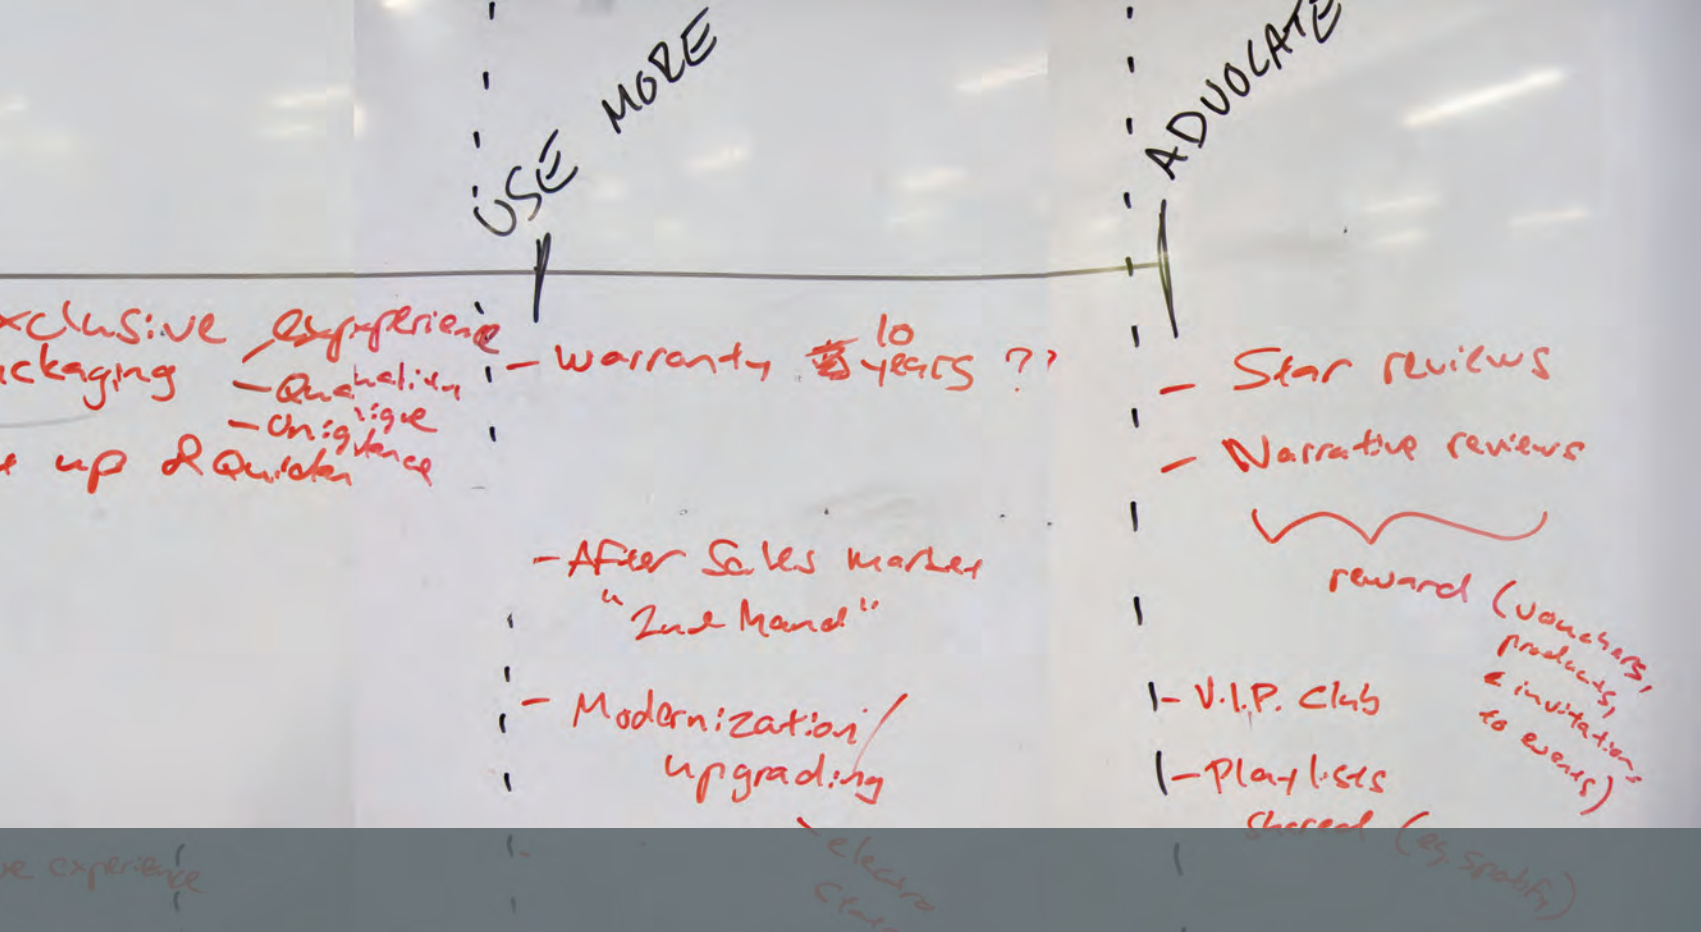 USE MORE
ADVOCATE
xclusive experience
ackaging
- Quality
- Unique
up & Quicker
- Warranty 10 years ??
- After Sales market
"2nd Hand"
- Modernization/
upgrading
electro
- Star reviews
- Narrative reviews
reward (vouchers,
products,
& invitations
to events)
- V.I.P. Club
- Playlists
shared (eg. spotify)
experience